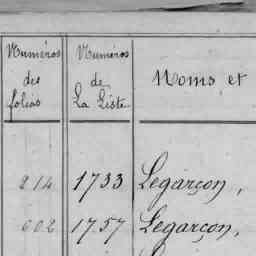 Numéros des folios
Numéros de La Liste
Noms et
214 1733 Legarçon,
602 1757 Legarçon,